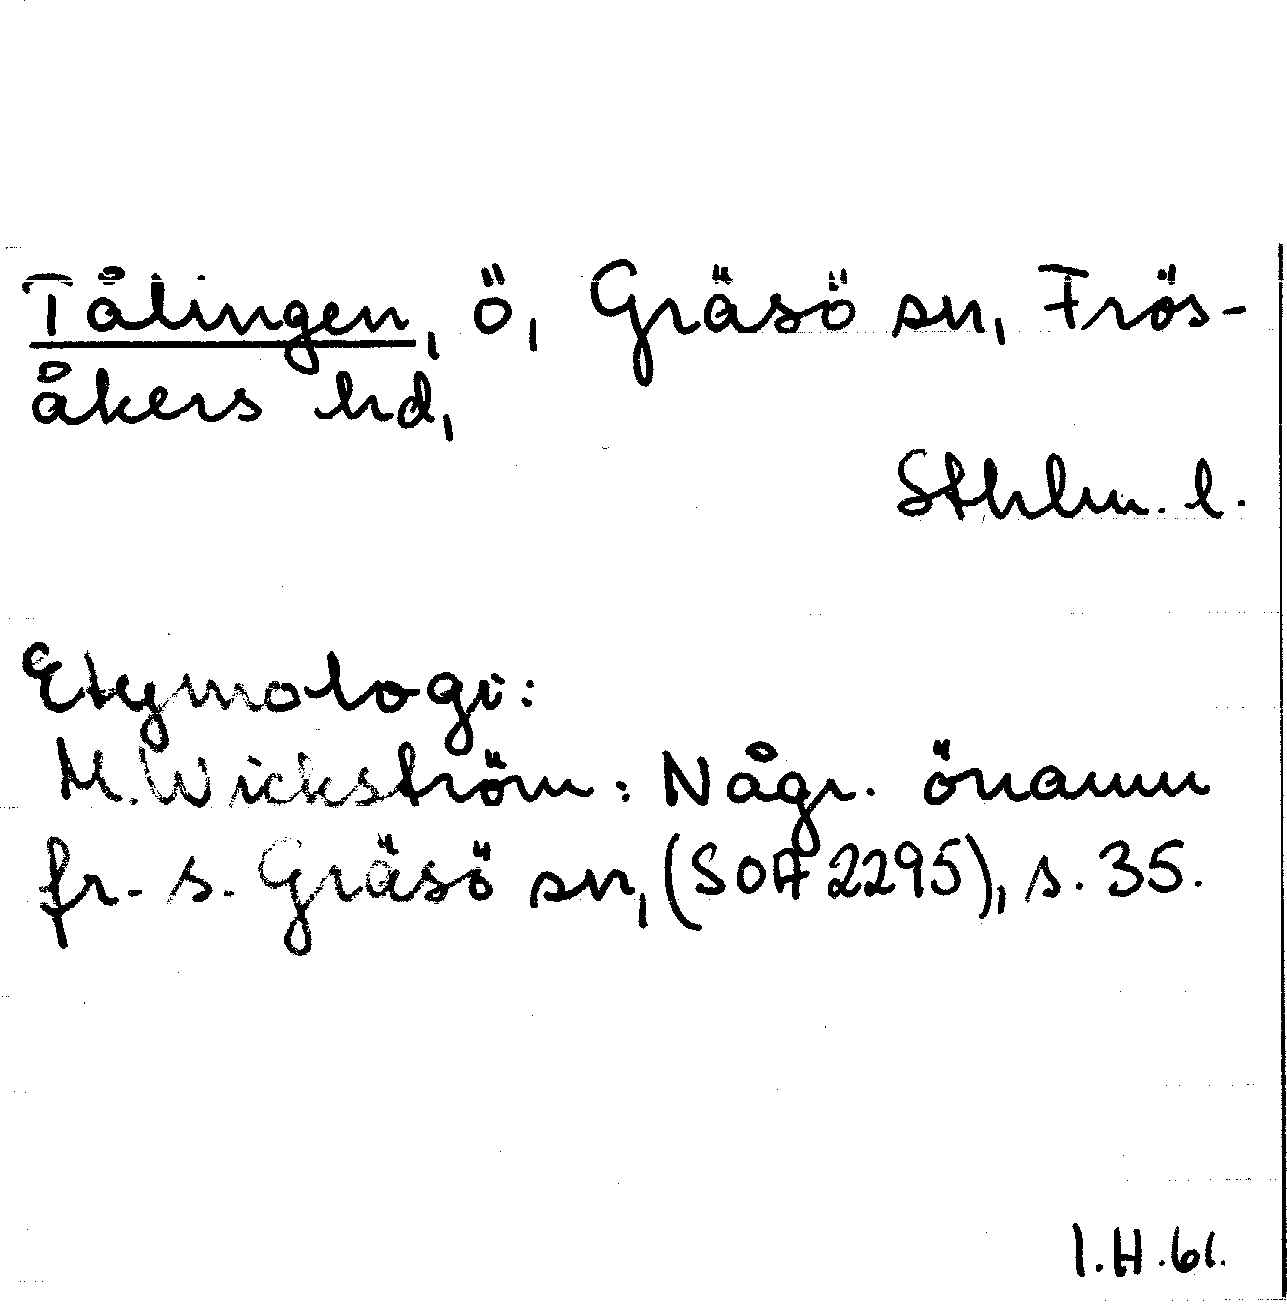 Tålingen, ö, Gräsö sn, Frös-
åkers hd,
Sthlm. l.
Etymologi:
M. Wickström: Någr. önamn
fr. s. Gräsö sn, (SOA 2295), s. 35.
I.H. 61.